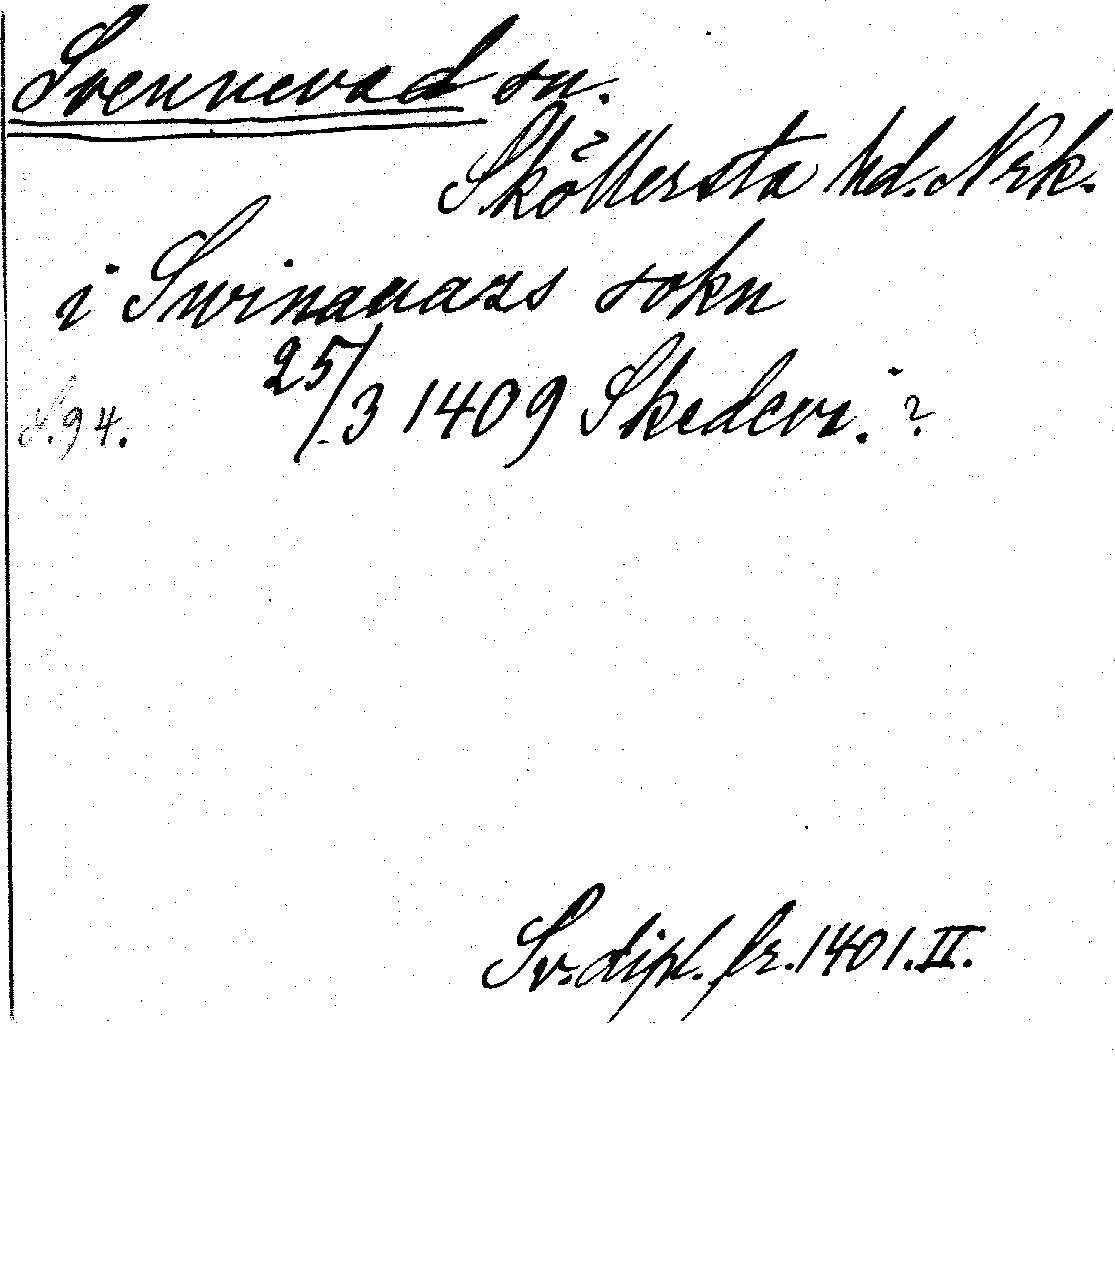 Svennevad sn.
Sköllersta hd. Nrk.
i Swinauazs sokn
25/3 1409 Skedevi. ?
S. 94.
Sv. dipl. fr. 1401. II.